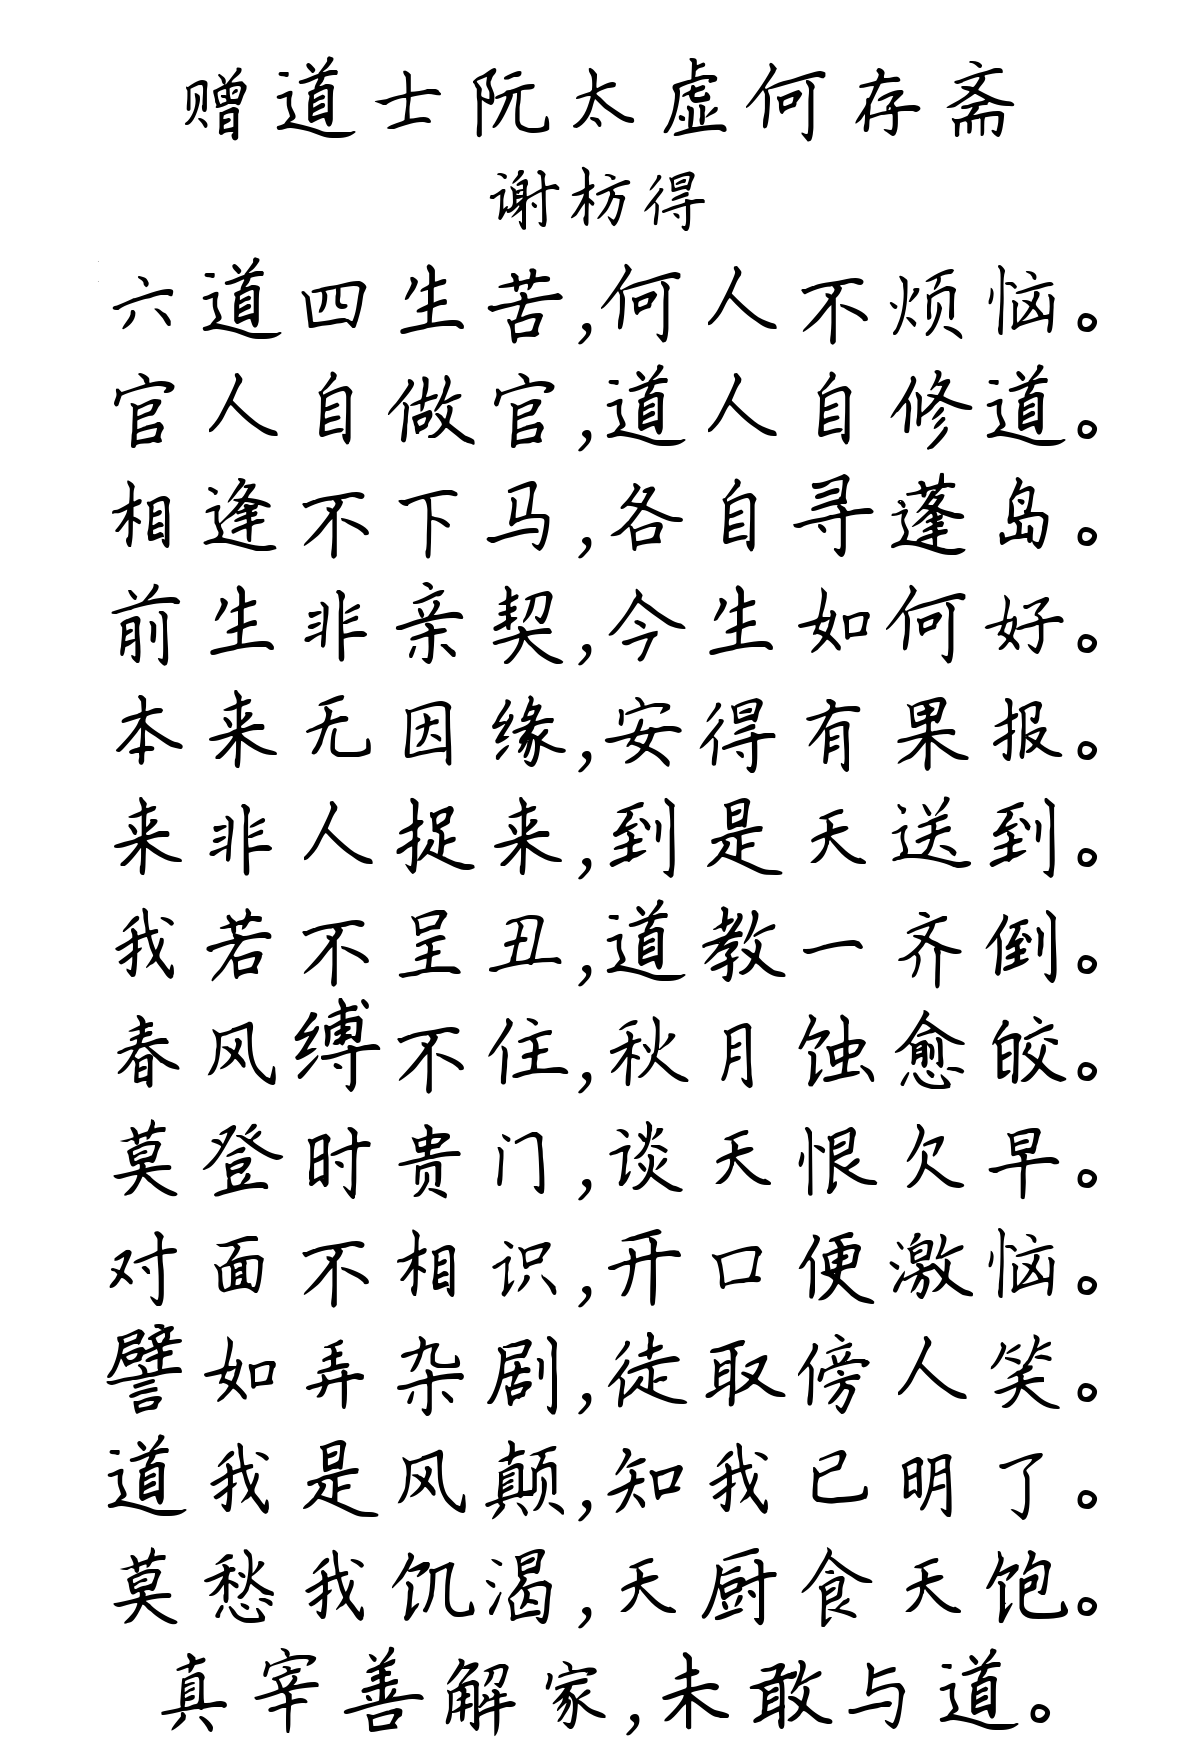 赠道士阮太虚何存斋
谢枋得
六道四生苦,何人不烦恼。
官人自做官,道人自修道。
相逢不下马,各自寻蓬岛。
前生非亲契,今生如何好。
本来无因缘,安得有果报。
来非人捉来,到是天送到。
我若不呈丑,道教一齐倒。
春风缚不住,秋月蚀愈皎。
莫登时贵门,谈天恨欠早。
对面不相识,开口便激恼。
譬如弄杂剧,徒取傍人笑。
道我是风颠,知我已明了。
莫愁我饥渴,天厨食天饱。
真宰善解家,未敢与道。